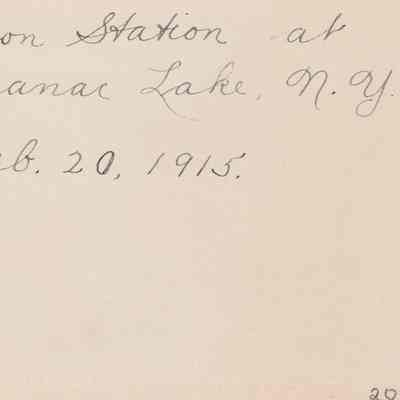 on Station at
anac Lake, N.Y.
b. 20, 1915.
20